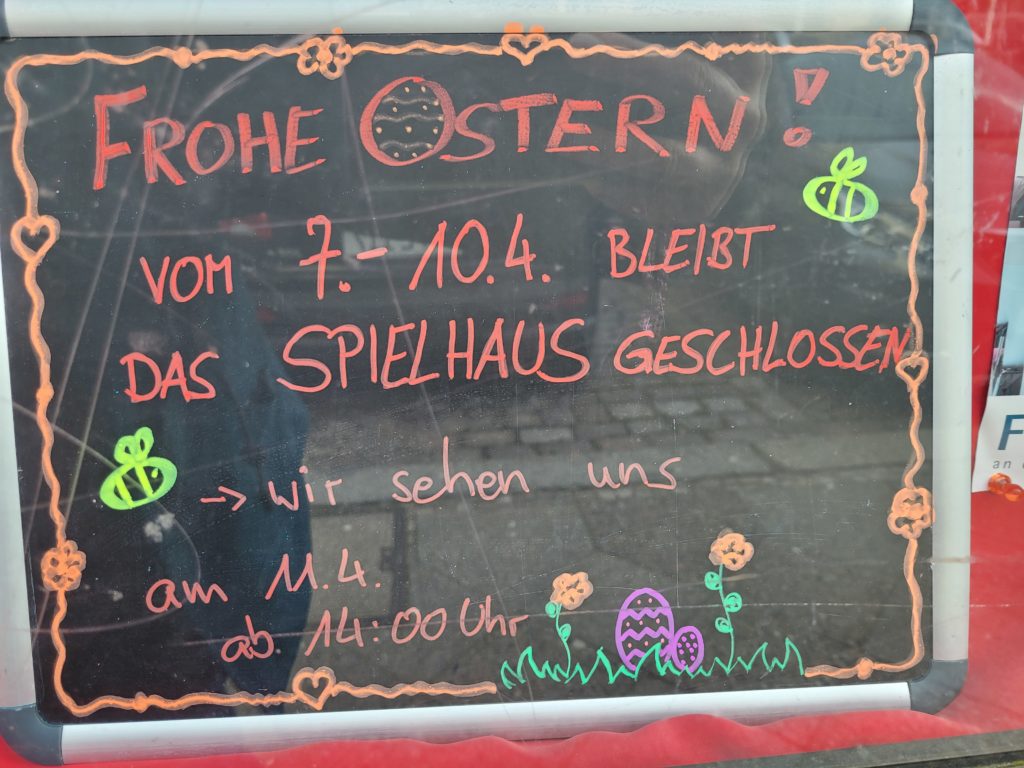 FROHE OSTERN!
VOM 7.-10.4. BLEIBT
DAS SPIELHAUS GESCHLOSSEN
→ wir sehen uns
am 11.4.
ab. 14:00 Uhr
F
an d